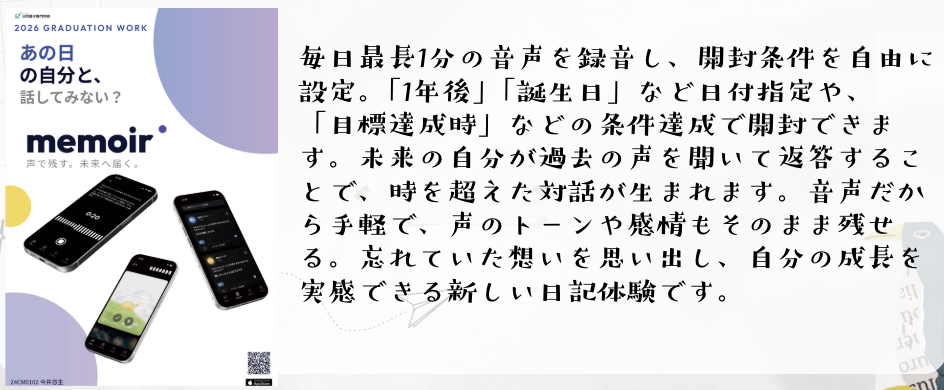 2026 GRADUATION WORK
あの日
の自分と、
話してみない？
memoir
声で残す。未来へ届く。
0:20
24CM0102 今井悠生
毎日最長1分の音声を録音し、開封条件を自由に
設定。「1年後」「誕生日」など日付指定や、
「目標達成時」などの条件達成で開封できま
す。未来の自分が過去の声を聞いて返答するこ
とで、時を超えた対話が生まれます。音声だか
ら手軽で、声のトーンや感情もそのまま残せ
る。忘れていた想いを思い出し、自分の成長を
実感できる新しい日記体験です。